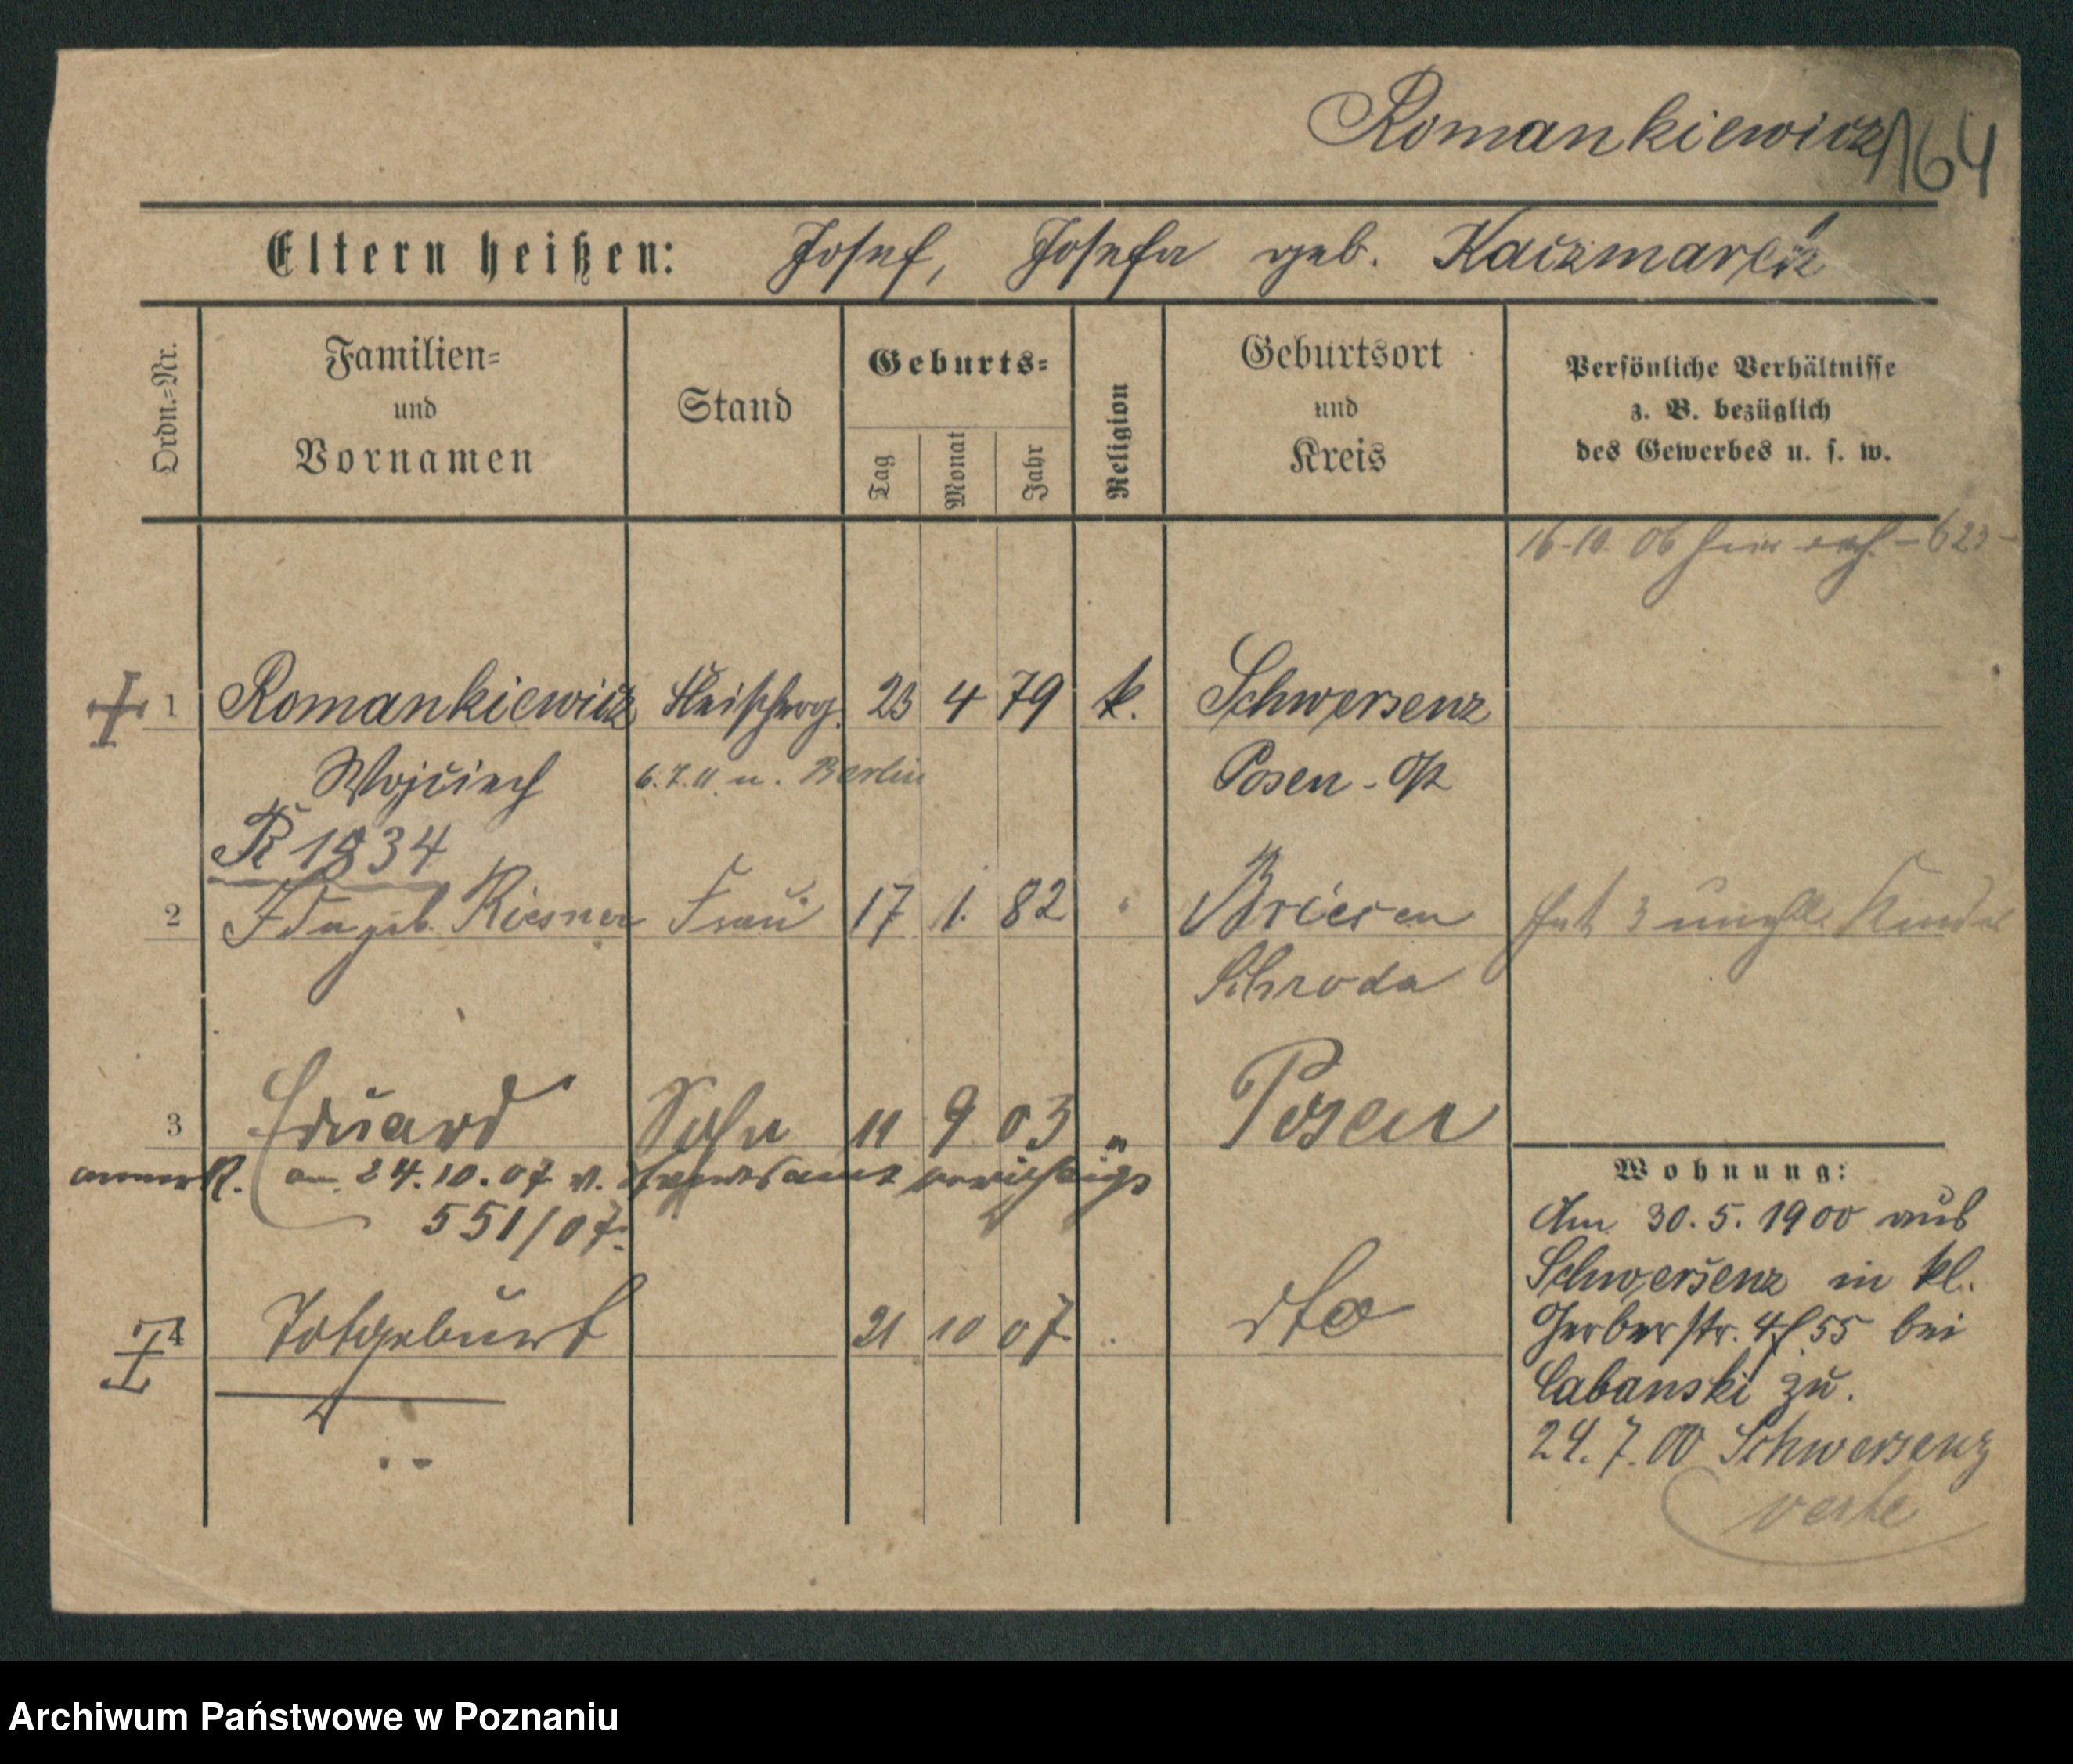 Romankiewicz 164
Eltern heißen: Josef, Josefa geb. Kaczmarek
Ordn.=Nr.
Familien=
und
Vornamen
Stand
Geburts=
Tag
Monat
Jahr
Religion
Geburtsort
und
Kreis
Persönliche Verhältnisse
z. B. bezüglich
des Gewerbes u. s. w.
16-10. 06
1 Romankiewicz 23 4 79 k. Schwersenz
Wojciech 6.7.11 n. Berlin Posen - Ost
R 1834
2 Ida geb. Riesner Frau 17 1. 82 " Briesen hat 3 unehl. Kinder
Schroda
3 Eduard Sohn 11 9 03 " Posen
am 24.10.07 v.
551/07.
4 Totgeburt 21 10 07 dto
Wohnung:
Am 30.5.1900 aus
Schwersenz in kl.
Gerberstr. 4 55 bei
Labanski zu.
24.7.00 Schwersenz
verte
Archiwum Państwowe w Poznaniu